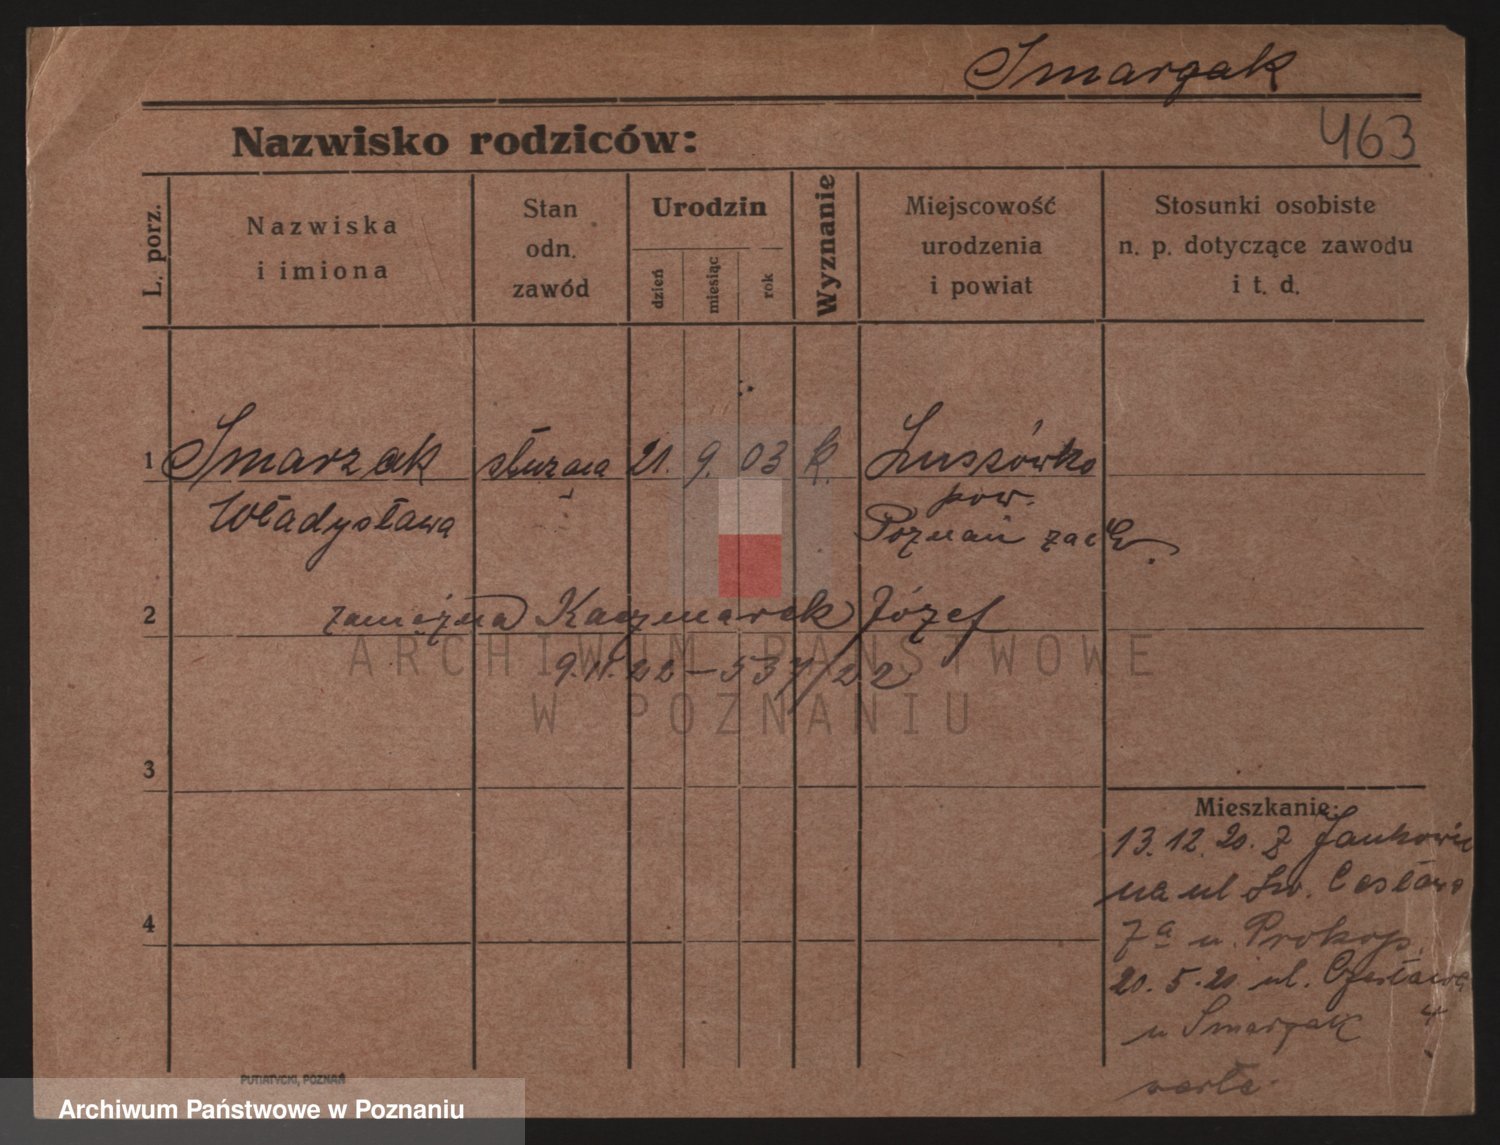 Smarzak
463
Nazwisko rodziców:
L. porz.
Nazwiska
i imiona
Stan
odn.
zawód
Urodzin
dzień
miesiąc
rok
Wyznanie
Miejscowość
urodzenia
i powiat
Stosunki osobiste
n. p. dotyczące zawodu
i t. d.
1 Smarzak służąca 21. 9. 03 k. Lussówko
Władysława
pow.
Poznań zach.
2 zamężna Kaczmarek Józef
9.11.22 - 537/22
ARCHIWUM PAŃSTWOWE
W POZNANIU
3
Mieszkanie:
13.12.20. z Jankowic
na ul Św. Cesława
7a u. Prokop.
4
20.5.21 ul. Czesława
4
u Smarzak
PUTIATYCKI, POZNAŃ
Archiwum Państwowe w Poznaniu